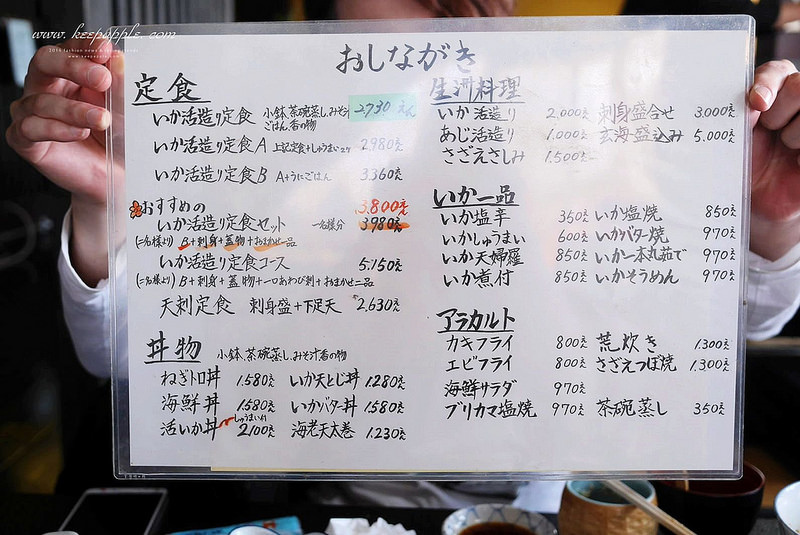 www.keepapple.com
おしながき
定食
いか活造り定食 小鉢、茶碗蒸し、みそ汁 ごはん、香の物 2730えん
いか活造り定食A 上記定食+しゅうまい2ケ 2980えん
いか活造り定食B A+うにごはん 3.360えん
おすすめの 3.800えん
いか活造り定食セット 一名様分 3980えん
(二名様より) B+刺身+蓋物+おまかせ一品
いか活造り定食コース 5.150えん
(二名様より) B+刺身+蓋物+一口あわび刺+おまかせ二品
天刺定食 刺身盛+下足天 2.630えん
丼物 小鉢、茶碗蒸し、みそ汁香の物
ねぎトロ丼 1.580えん いか天とじ丼 1.280えん
海鮮丼 1.580えん いかバター丼 1.580えん
活いか丼 しゅうまい付 2100えん 海老天太巻 1.230えん
生洲料理
いか活造り 2.000えん 刺身盛合せ 3.000えん
あじ活造り 1.000えん 玄海盛込み 5.000えん
さざえさしみ 1.500えん
いか一品
いか塩辛 350えん いか塩焼 850えん
いかしゅうまい 600えん いかバター焼 970えん
いか天婦羅 850えん いか一本丸茹で 970えん
いか煮付 850えん いかそうめん 970えん
アラカルト
カキフライ 800えん 荒炊き 1.300えん
エビフライ 800えん さざえつぼ焼 1.300えん
海鮮サラダ 970えん
ブリカマ塩焼 970えん 茶碗蒸し 350えん